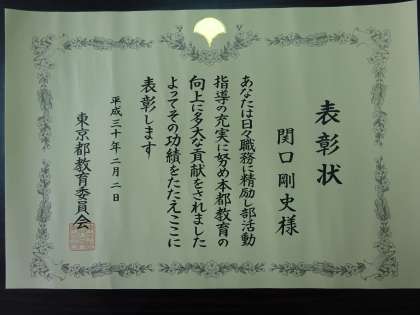 表彰状
関口剛史様
あなたは日々職務に精励し部活動
指導の充実に努め本都教育の
向上に多大な貢献をされました
よってその功績をたたえここに
表彰します
平成三十年二月二日
東京都教育委員会